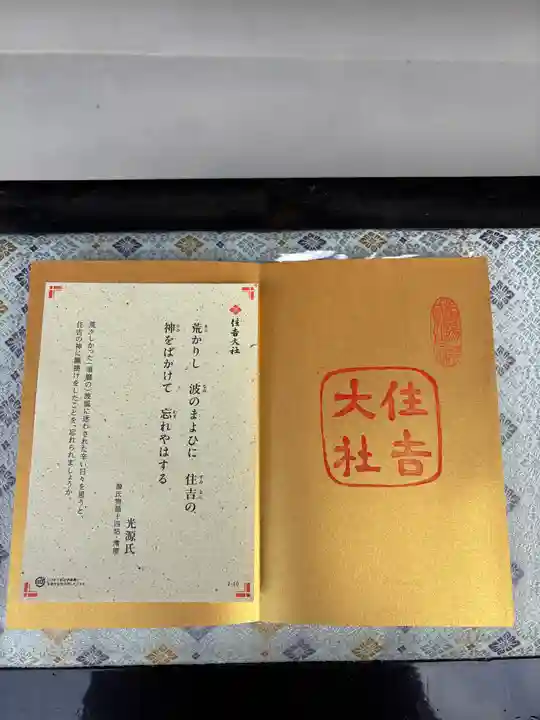 住吉
大社
住吉大社
荒かりし 波のまよひに 住吉の、
神をばかけて 忘れやはする
光源氏
源氏物語十四帖・澪標
荒々しかった（須磨の）波風に迷わされた辛い日々を思うと、
住吉の神に願掛けをしたことを、忘れられましょうか。